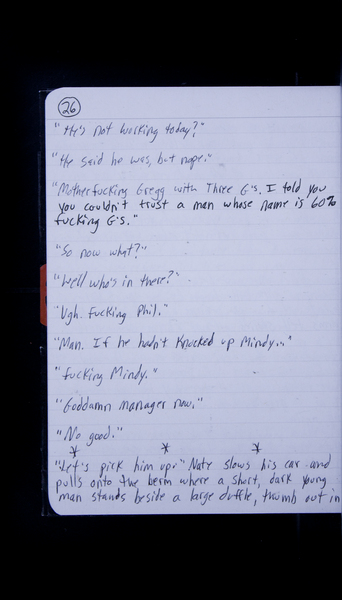 26
"He's not working today?"
"He said he was, but nope."
"Motherfucking Gregg with Three G's. I told you
you couldn't trust a man whose name is 60%
fucking G's."
"So now what?"
"Well who's in there?"
"Ugh. Fucking Phil."
"Man. If he hadn't knocked up Mindy..."
"Fucking Mindy."
"Goddamn manager now."
"No good."
* * *
"Let's pick him up." Nate slows his car and
pulls onto the berm where a short, dark young
man stands beside a large duffle, thumb out in